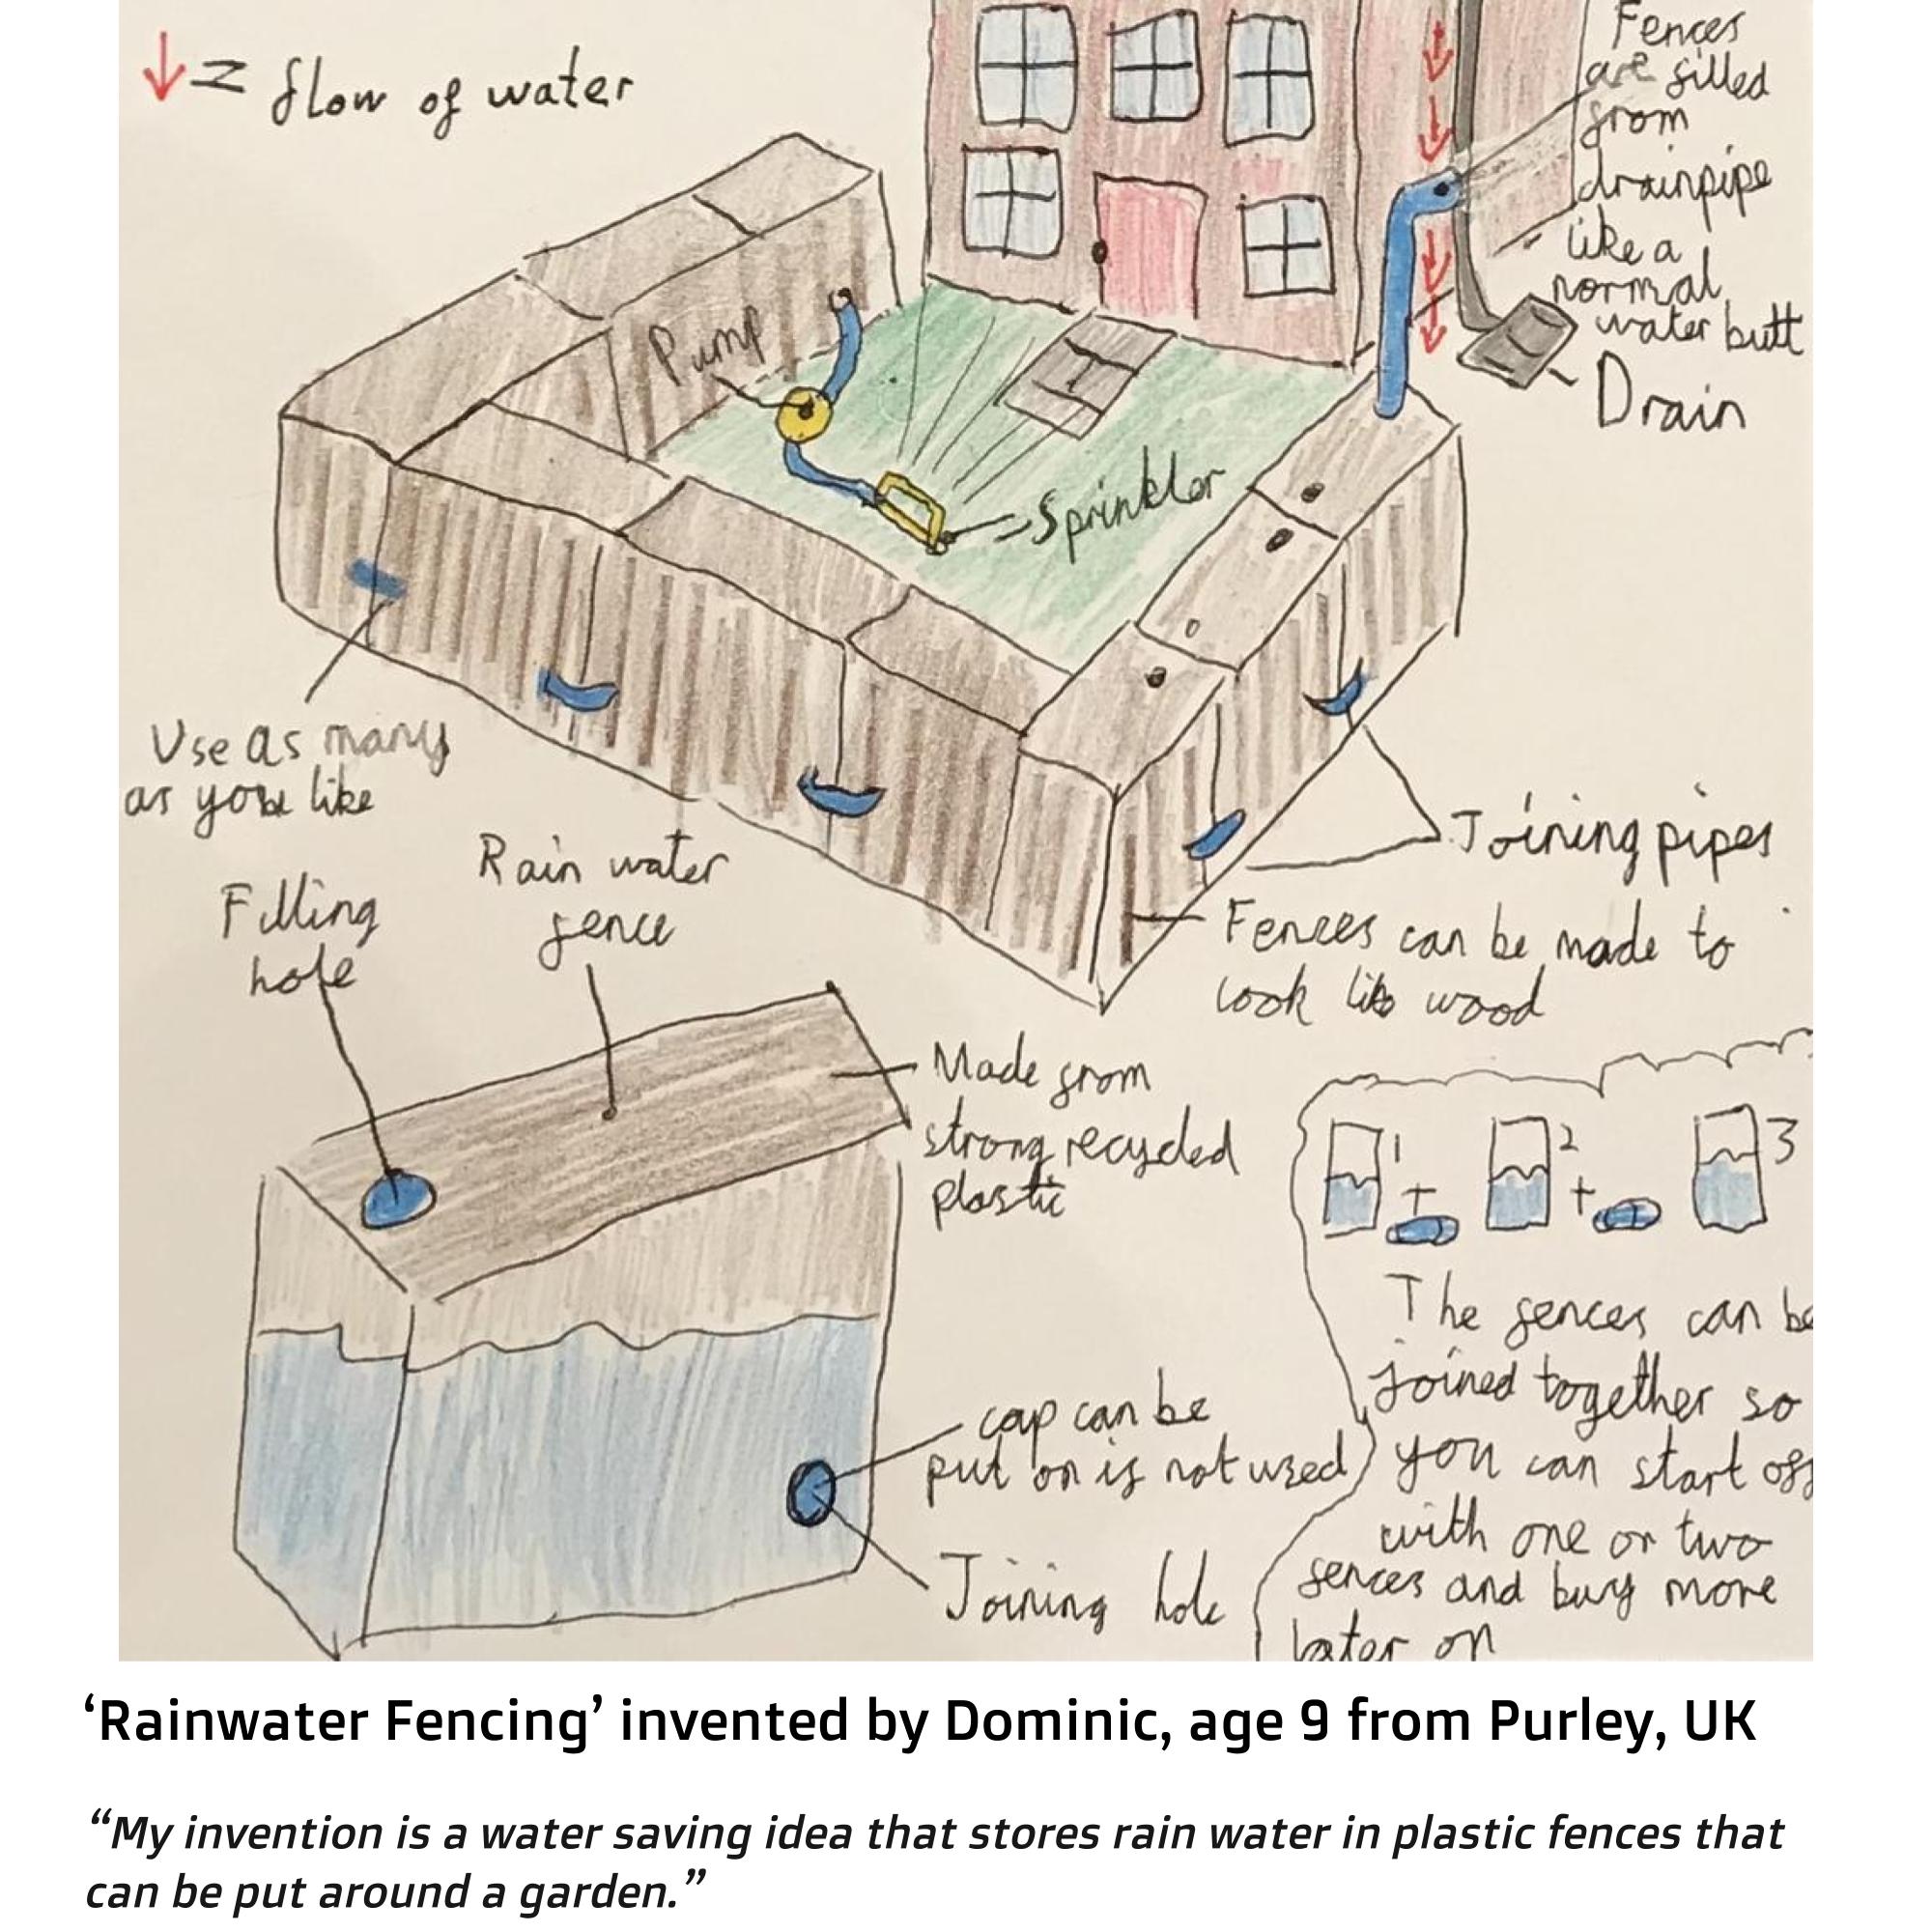 ↓ = flow of water
Fences
are filled
from
drainpipe
like a
normal
water butt
Drain
Pump
Sprinkler
Use as many
as you like
Joining pipes
Fences can be made to
look like wood
Filling
hole
Rain water
fence
Made from
strong recycled
plastic
cap can be
put on if not used
Joining hole
1 + 2 + 3
The fences can be
joined together so
you can start off
with one or two
fences and buy more
later on
‘Rainwater Fencing’ invented by Dominic, age 9 from Purley, UK
“My invention is a water saving idea that stores rain water in plastic fences that
can be put around a garden.”